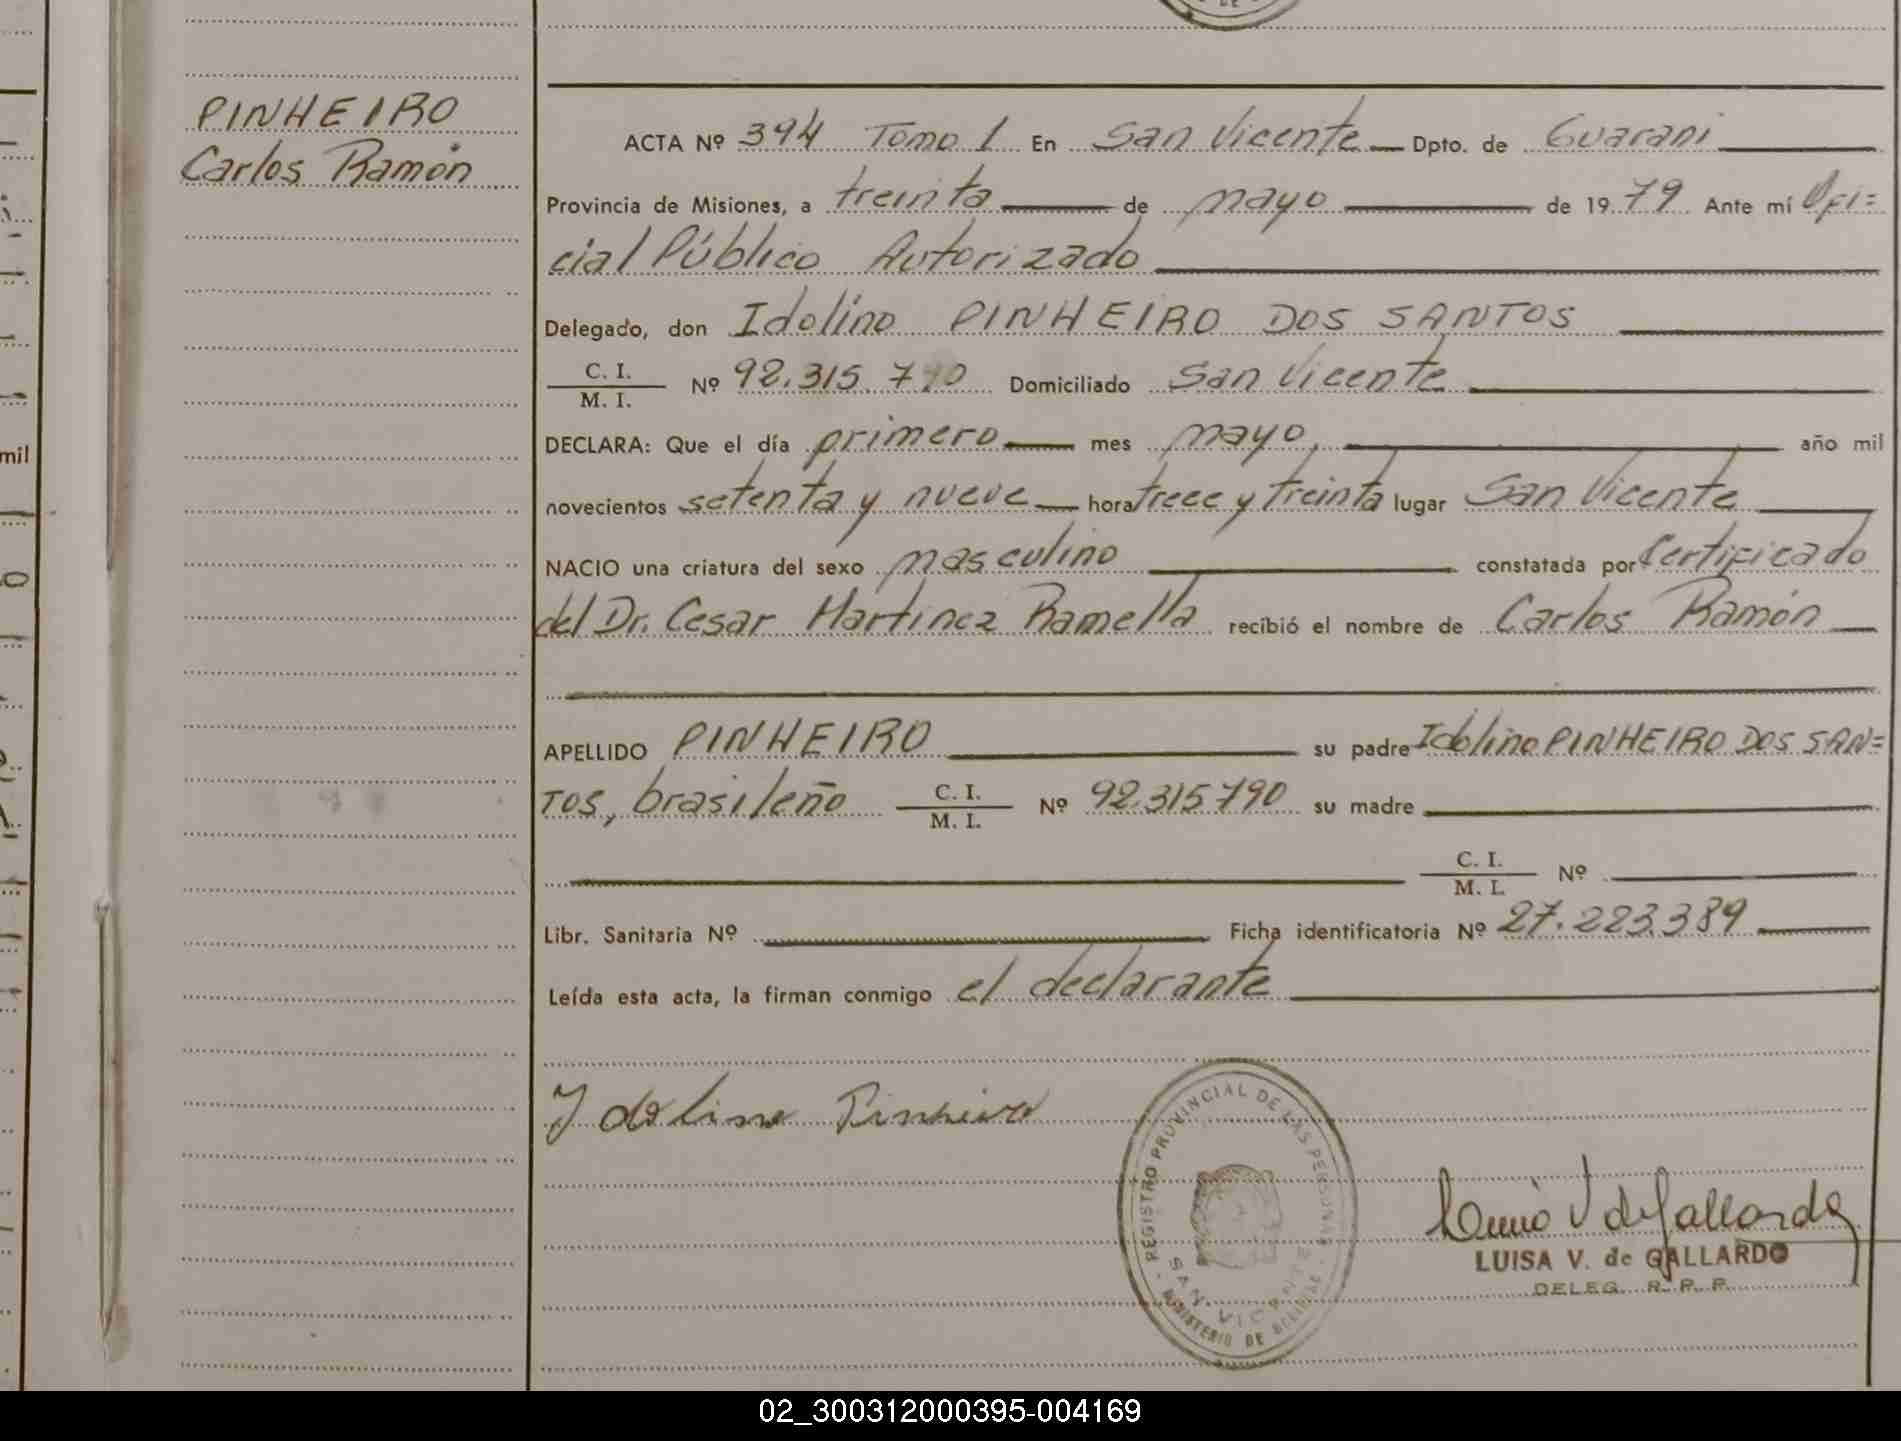 PINHEIRO
Carlos Ramón
ACTA Nº 394 Tomo 1 En San Vicente Dpto. de Guarani
Provincia de Misiones, a treinta de mayo de 1979 Ante mí Ofi=
cial Público Autorizado
Delegado, don Idolino PINHEIRO DOS SANTOS
C. I.
M. I. Nº 92.315.790 Domiciliado San Vicente
DECLARA: Que el día primero mes mayo, año mil
novecientos setenta y nueve hora trece y treinta lugar San Vicente
NACIO una criatura del sexo masculino constatada por Certificado
del Dr. Cesar Martinez Ramella recibió el nombre de Carlos Ramón
APELLIDO PINHEIRO su padre Idolino PINHEIRO DOS SAN=
TOS, brasileño C. I. M. I. Nº 92.315790 su madre
C. I.
M. I. Nº
Libr. Sanitaria Nº Ficha identificatoria Nº 27.223.389
Leída esta acta, la firman conmigo el declarante
Idolino Pinheiro
REGISTRO PROVINCIAL DE LAS PERSONAS
SAN VICENTE
MINISTERIO DE
LUISA V. de GALLARDO
DELEG. R. P. P.
mil
02_300312000395-004169